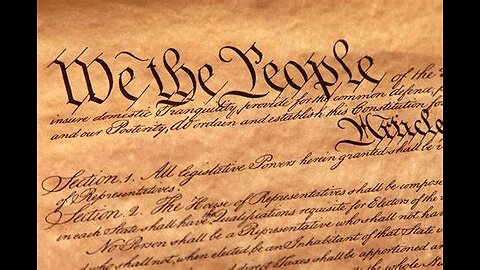 We the People of the
insure domestic Tranquility, provide for the common defence,
and our Posterity, do ordain and establish this Constitution for
Article
Section. 1. All legislative Powers herein granted shall be
of Representatives.
Section. 2. The House of Representatives shall be compose
in each State shall have Qualifications requisite for Electors of the
No Person shall be a Representative who shall not have
and who shall not, when elected, be an Inhabitant of that State
and direct Taxes shall be apportioned
the whole